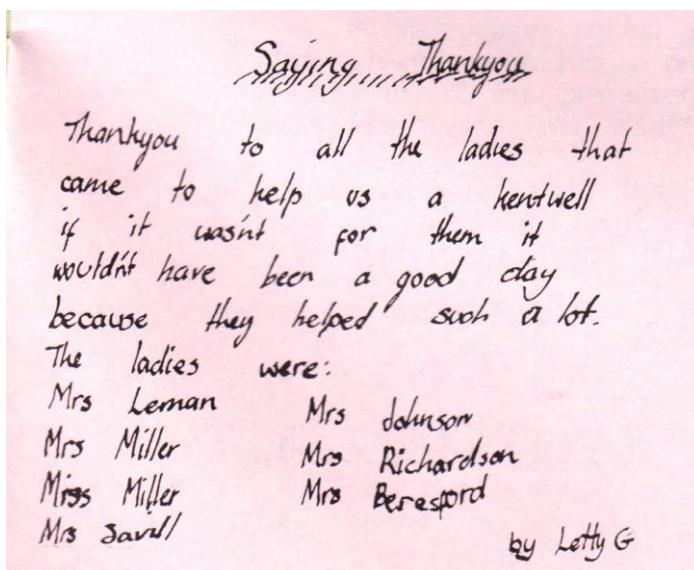 Saying.... Thankyou
Thankyou to all the ladies that
came to help us a kentwell
if it wasn't for them it
wouldn't have been a good day
because they helped such a lot.
The ladies were:
Mrs Leman Mrs Johnson
Mrs Miller Mrs Richardson
Miss Miller Mrs Beresford
Mrs Savill
by Letty G